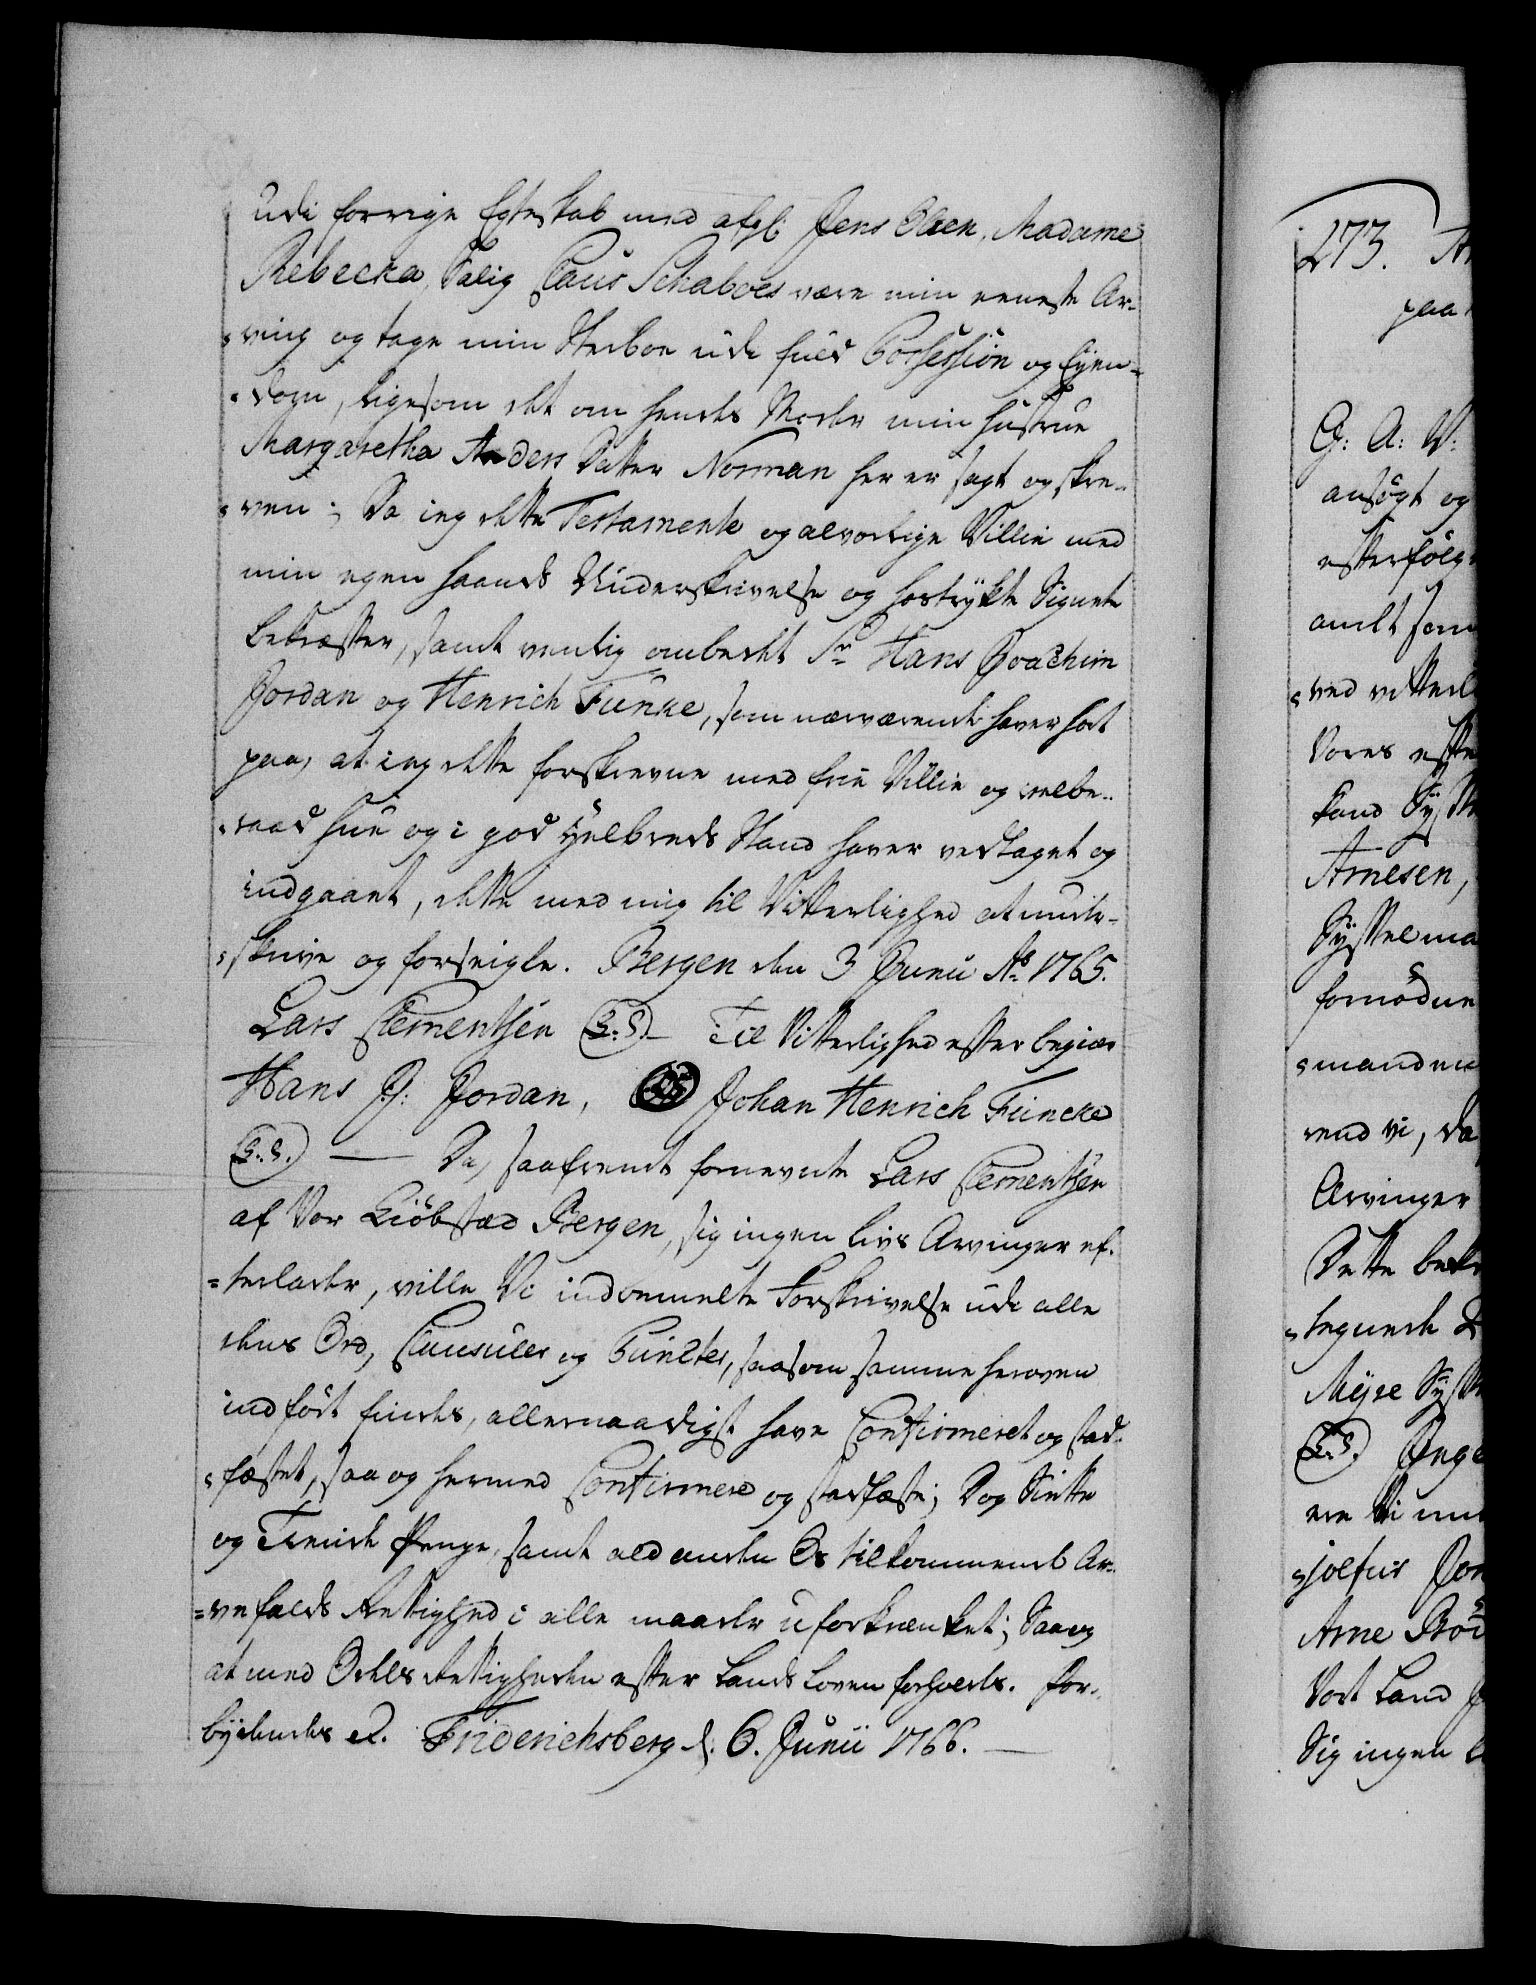 udi forrige Egteskab med afgl: Jens Olsen, Madame
Rebecka, Salig Claus Schaboes være min eeneste Ar-
ving og tage min Sterboe udi fuld Possession og Eyen-
dom, ligesom det om hendes Moder min Hustrue
Margaretha Anders Datter Norman her er sagt og skre-
ven; Da ieg dette Testamente og alvorlige Villie med
min egen haands Underskrivelse og hostrykte Signete
bekræfter, samt venlig ombedet Sr. Hans Joachim
Jordan og Henrich Funke, som nærværende haver hört
paa, at ieg dette forskrevne med frie Villie og velbe-
raad Hue og i god Helbreds Stand haver vedtaget og
indgaaet, dette med mig til Vitterlighed at under-
skrive og forseigle. Bergen den 3 Junii Ao. 1765.
Lars Clementsen (L.S.) — Til Vitterlighed efter begiær
Hans J: Jordan, (L.S.) Johan Henrich Funcke
(L.S.) — Da, saafremt fornevnte Lars Clementsen
af Vor Kiöbstæd Bergen, sig ingen Livs Arvinger ef-
terlader, ville Vi indbemelte Forskrivelse udi alle
dens Ord, Clausuler og Puncter, saasom samme heroven
indfört findes, allernaadigst have Confirmeret og stad-
fæstet, saa og hermed Confirmere og stadfæste; Dog Siette
og Tiende Penge, samt ald anden Os tilkommende Ar-
vefalds Rettighed i alle maader uforkrænket; Saa og
at med Odels Rettigheden efter Lands Loven forholdes. For-
bydendes &. Friderichsberg d: 6. Junii 1766. —
273.
paa
G: A: V:
ansögt og
efterfölg
andet som
Vores
Land Sys
Arnesen,
Sysselma
fornödne
manden
vend vi, da
Arvinger
Dette bekr
Myre Sys
(L.S.) Inge
ere Vi
Jon
Arne
Vort Land
Sig ingen L